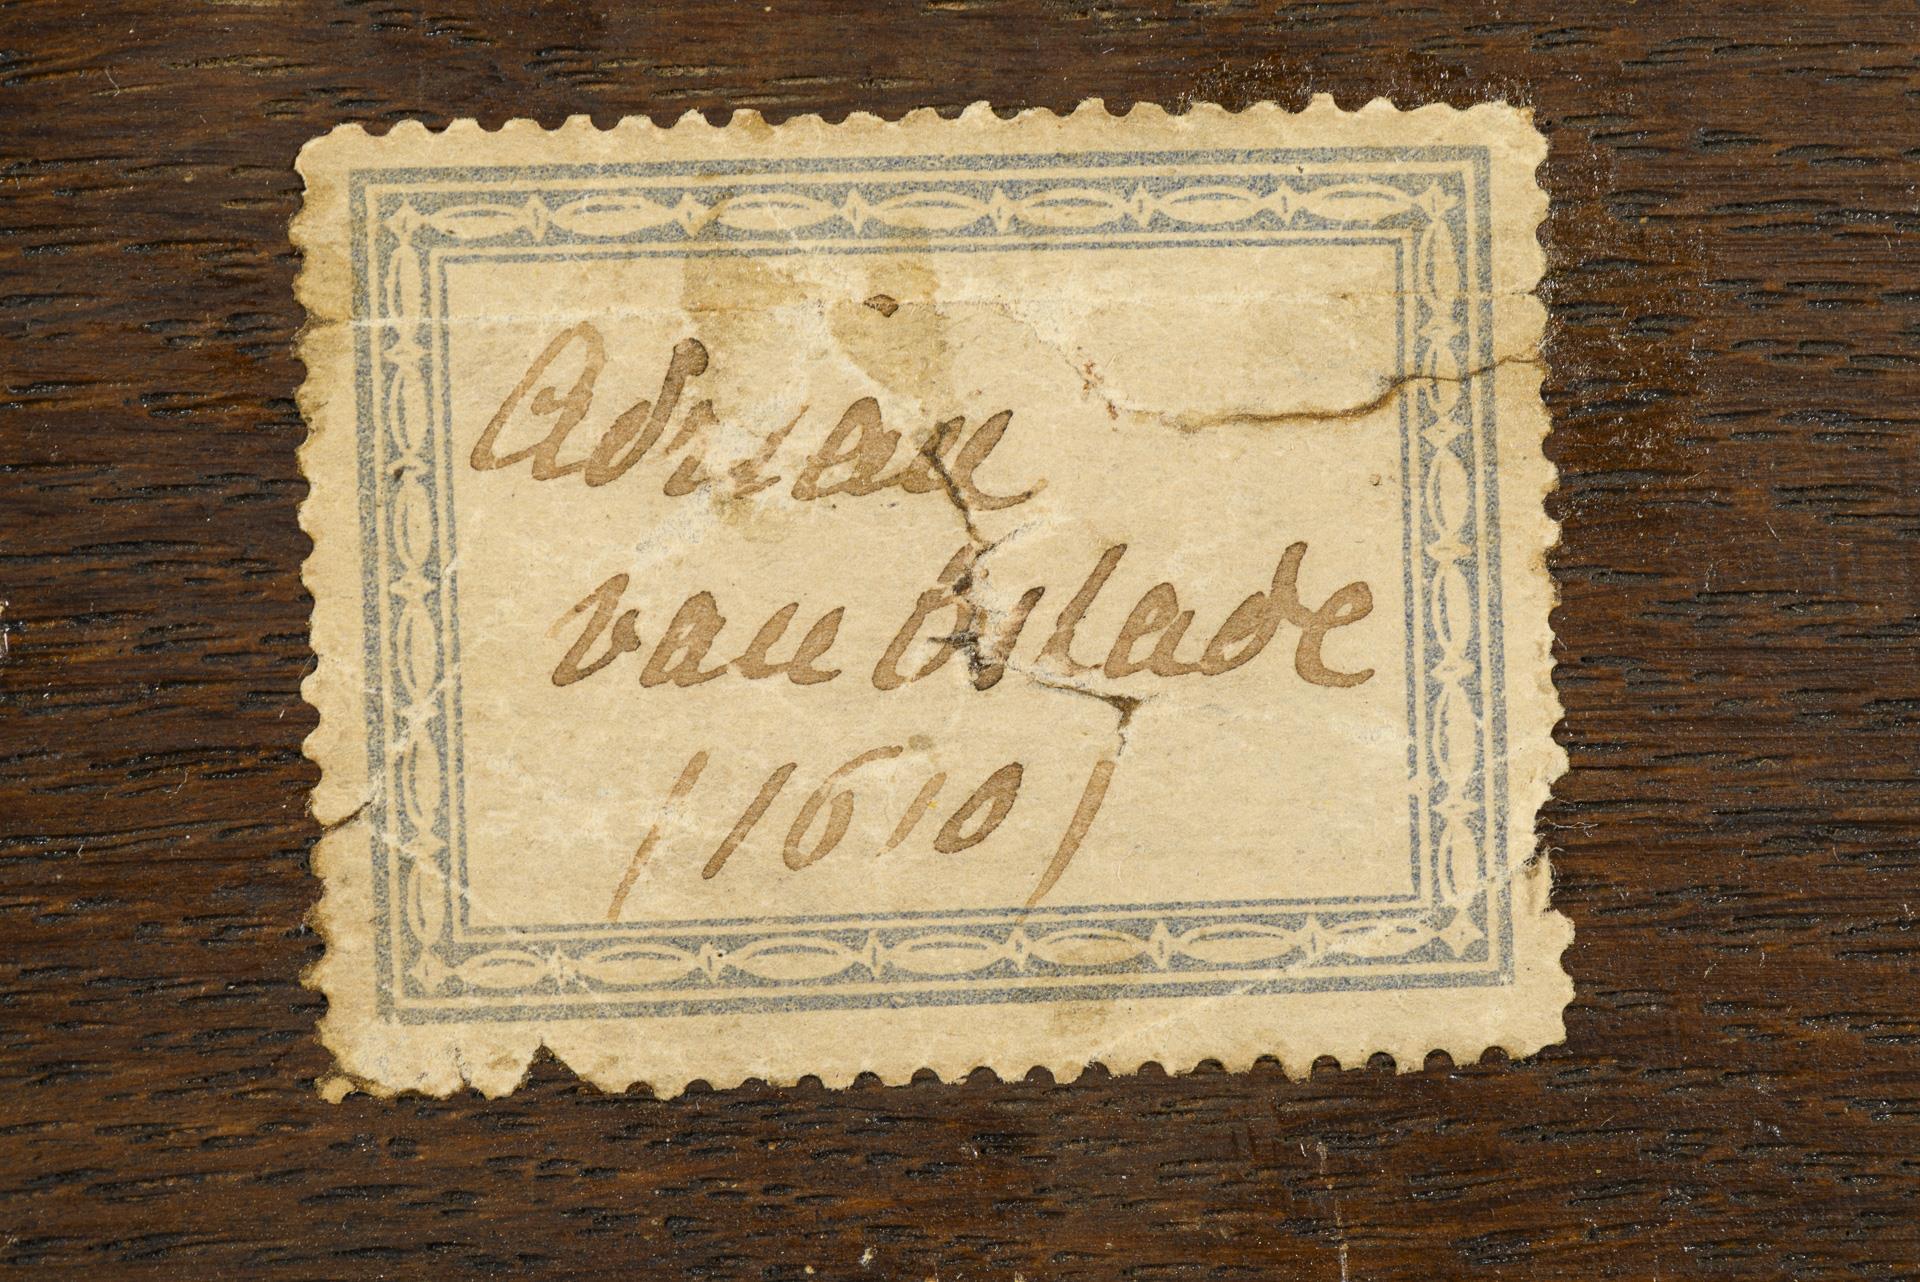 Adrian
van Ostade
(1610)